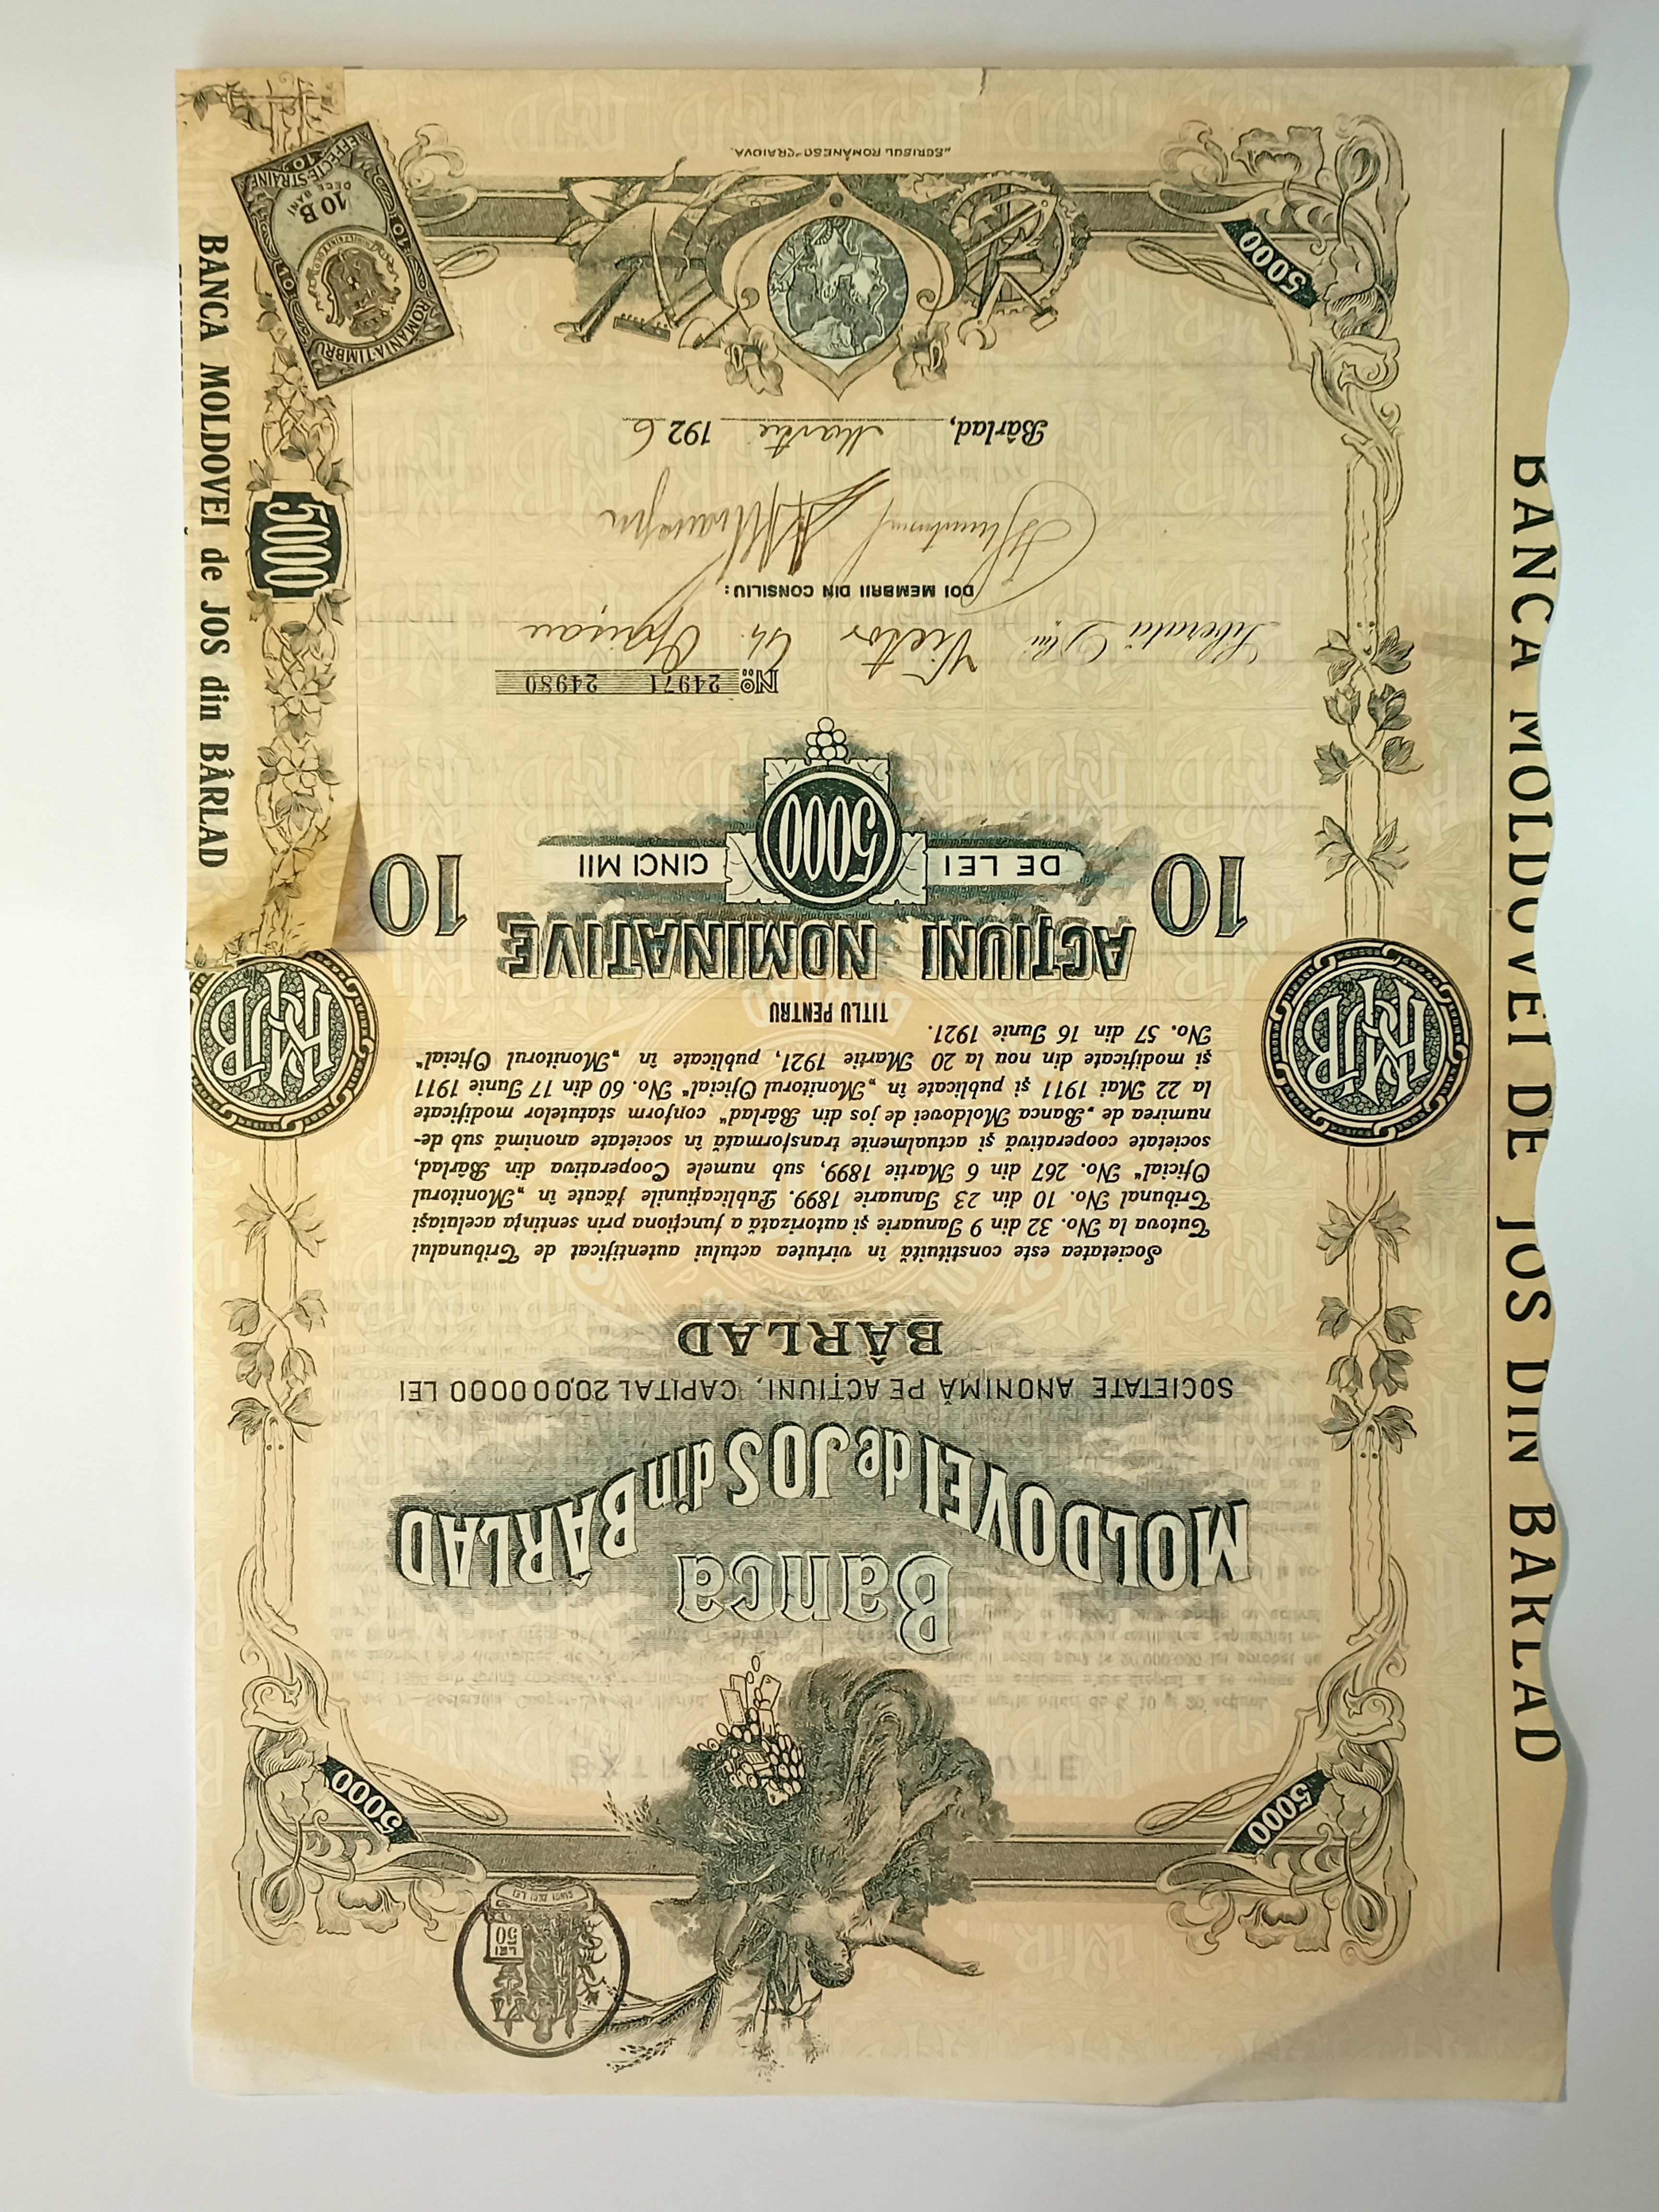 LEI
50
CINCI ZECI LEI
5000
5000
Banca
MOLDOVEI de JOS din BÂRLAD
SOCIETATE ANONIMĂ PE ACȚIUNI, CAPITAL 20,000000 LEI
BÂRLAD
Societatea este constituită în virtutea actului autentificat de Tribunalul
Tutova la No. 32 din 9 Ianuarie și autorizată a funcționa prin sentința aceluiași
Tribunal No. 10 din 23 Ianuarie 1899. Publicațiunile făcute în „Monitorul
Oficial" No. 267 din 6 Martie 1899, sub numele Cooperativa din Bârlad,
societate cooperativă și actualmente transformată în societate anonimă sub de-
numirea de „Banca Moldovei de jos din Bârlad" conform statutelor modificate
la 22 Mai 1911 și publicate în „Monitorul Oficial" No. 60 din 17 Iunie 1911
și modificate din nou la 20 Martie 1921, publicate în „Monitorul Oficial"
No. 57 din 16 Iunie 1921.
TITLU PENTRU
10 ACȚIUNI NOMINATIVE 10
DE LEI 5000 CINCI MII
No. 24971 24980
Liberată Dlui Victor Gh. Oprișan
DOI MEMBRII DIN CONSILIU:
Bârlad, Martie 1926
5000
5000
„SCRISUL ROMÂNESC" CRAIOVA.
BANCA MOLDOVEI DE JOS DIN BARLAD
BANCA MOLDOVEI de JOS din BÂRLAD
ROMANIA-TIMBRU
10 B
DECE BANI
EFFECTE STRAINE
10
10
10